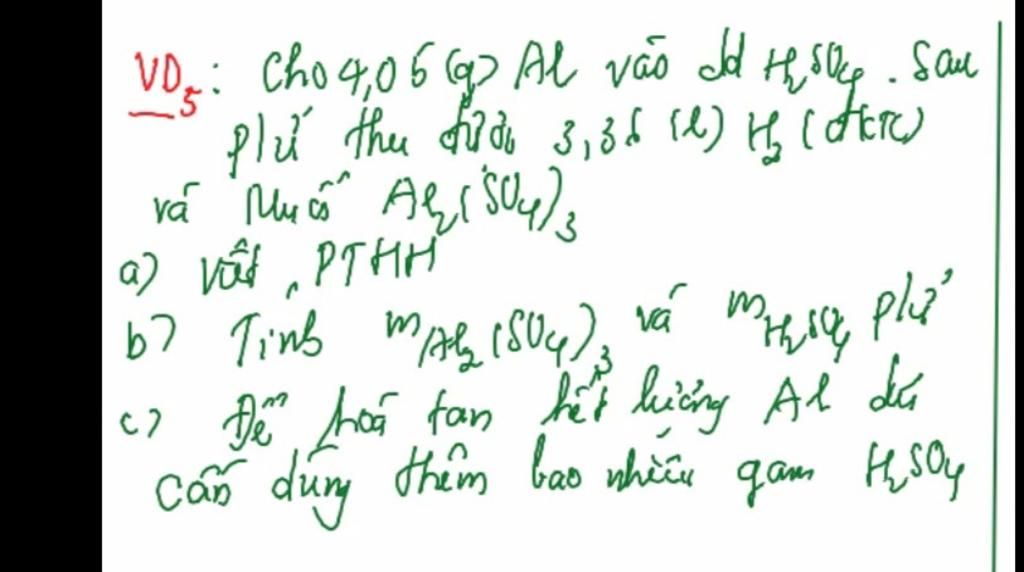 VD5: Cho 4,05 (g) Al vào dd H2SO4. Sau
p/ư thu được 3,36 (l) H2 (đktc)
và Muối Al2(SO4)3
a) Viết PTHH
b) Tính mAl2(SO4)3 và mH2SO4 p/ư
c) Để hoà tan hết lượng Al dư
cần dùng thêm bao nhiêu gam H2SO4